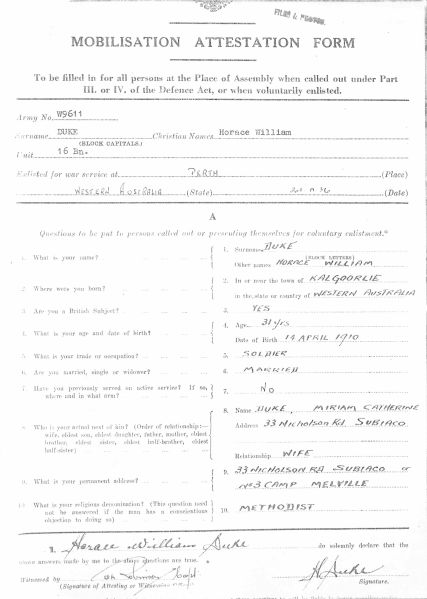 MOBILISATION ATTESTATION FORM
To be filled in for all persons at the Place of Assembly when called out under Part
III. or IV. of the Defence Act, or when voluntarily enlisted.
Army No. W9611
Surname DUKE Christian Names Horace William
(BLOCK CAPITALS.)
Unit 16 Bn.
Enlisted for war service at PERTH (Place)
WESTERN AUSTRALIA (State) (Date)
A
Questions to be put to persons called out or presenting themselves for voluntary enlistment.*
1. What is your name? 1. Surname DUKE
(BLOCK LETTERS)
Other names HORACE WILLIAM
2. Where were you born? 2. In or near the town of KALGOORLIE
in the state or country of WESTERN AUSTRALIA
3. Are you a British Subject? 3. YES
4. What is your age and date of birth? 4. Age 31 yrs
Date of Birth 14 APRIL 1910
5. What is your trade or occupation? 5. SOLDIER
6. Are you married, single or widower? 6. MARRIED
7. Have you previously served on active service? If so,
where and in what arm? 7. NO
8. Who is your actual next of kin? (Order of relationship:—
wife, eldest son, eldest daughter, father, mother, eldest
brother, eldest sister, eldest half-brother, eldest
half-sister)
8. Name DUKE, MIRIAM CATHERINE
Address 33 NICHOLSON RD. SUBIACO
Relationship WIFE
9. What is your permanent address? 9. 33 NICHOLSON RD SUBIACO or
No 3 CAMP MELVILLE
10. What is your religious denomination? (This question need
not be answered if the man has a conscientious
objection to doing so) 10. METHODIST
I, Horace William Duke do solemnly declare that the
above answers made by me to the above questions are true.
Witnessed by H Duke
(Signature of Attesting or Witnessing Signature.